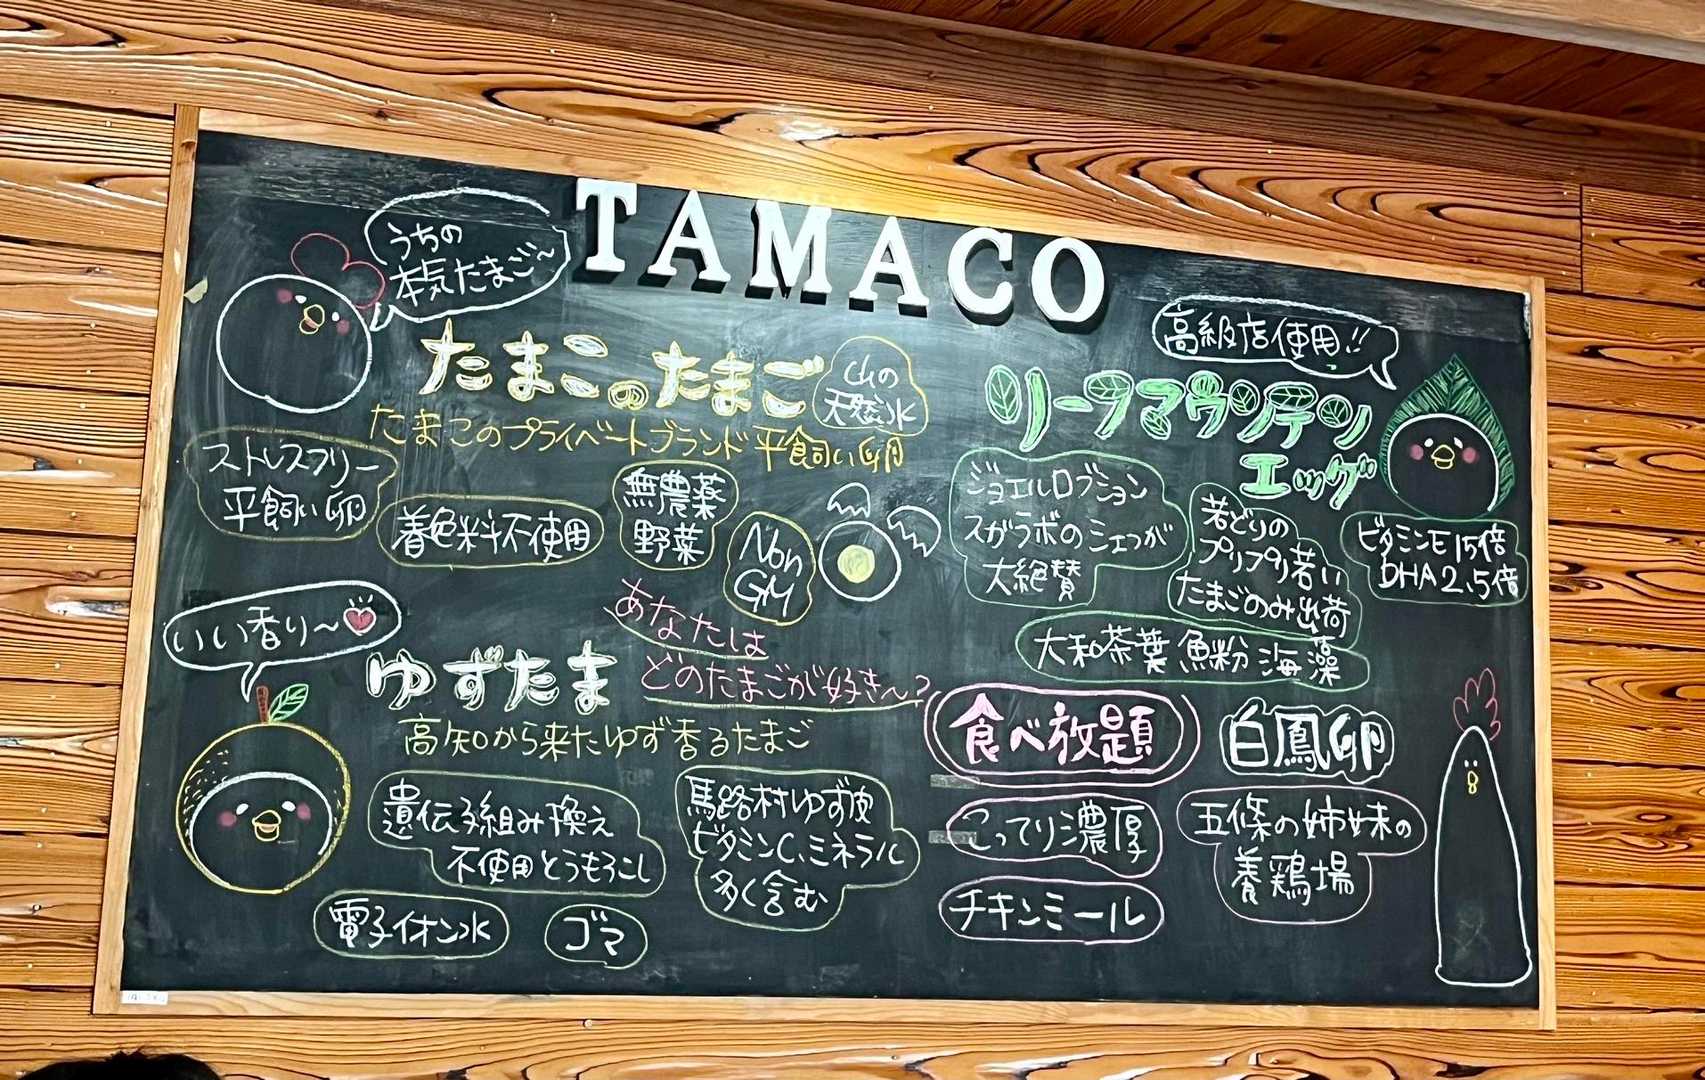 TAMACO
うちの
本気たまご～
たまこのたまご
山の
天然水
たまこのプライベートブランド平飼い卵
ストレスフリー
平飼い卵
着色料不使用
無農薬
野菜
Non
GM
高級店使用!!
リーフマウンテン
エッグ
ジョエルロブション
スガラボのシェフが
大絶賛
若どりの
プリプリ若い
たまごのみ出荷
ビタミンE15倍
DHA2.5倍
大和茶葉 魚粉 海藻
あなたは
どのたまごが好きぃ～?
いい香り～
ゆずたま
高知から来たゆず香るたまご
遺伝子組み換え
不使用とうもろこし
馬路村ゆず皮
ビタミンC、ミネラル
多く含む
電子イオン水
ゴマ
食べ放題
白鳳卵
こってり濃厚
五條の姉妹の
養鶏場
チキンミール